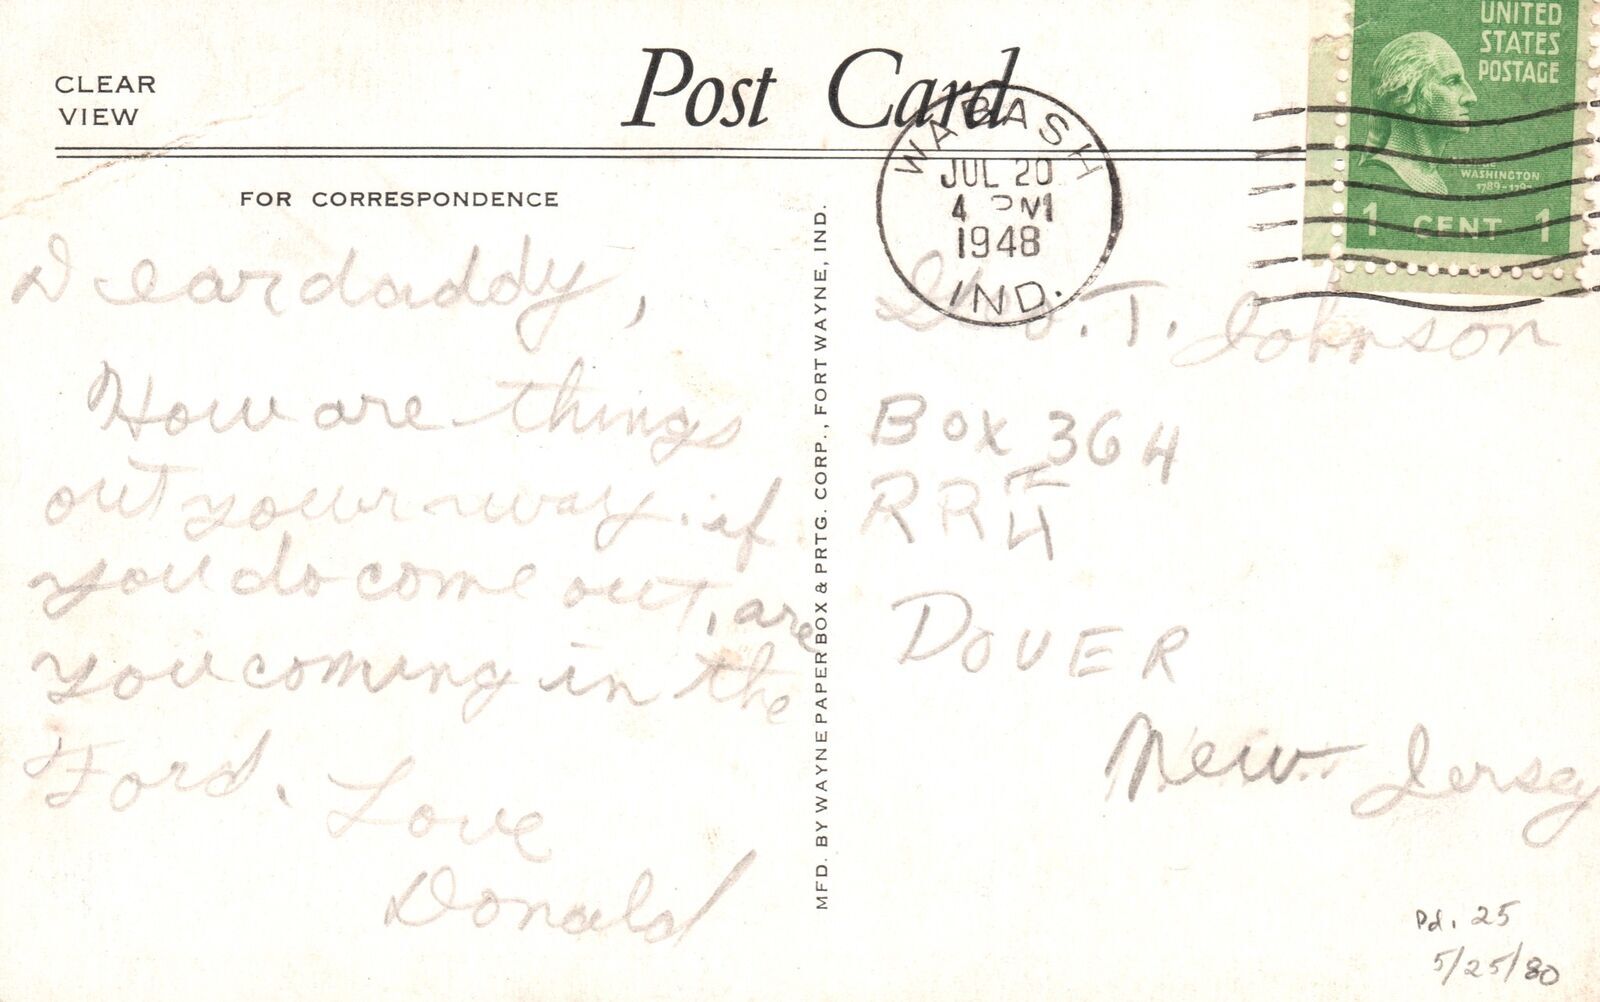 CLEAR
VIEW
Post Card
FOR CORRESPONDENCE
Dear daddy,
How are things
out your way. if
you do come out, are
you coming in the
Ford. Love
Donald
MFD. BY WAYNE PAPER BOX & PRTG. CORP., FORT WAYNE, IND.
WABASH
JUL 20
4 PM
1948
IND.
UNITED
STATES
POSTAGE
WASHINGTON
1 CENT 1
Geo. T. Johnson
Box 364
RR 4
DOVER
New Jersey
Pd. 25
5/25/80